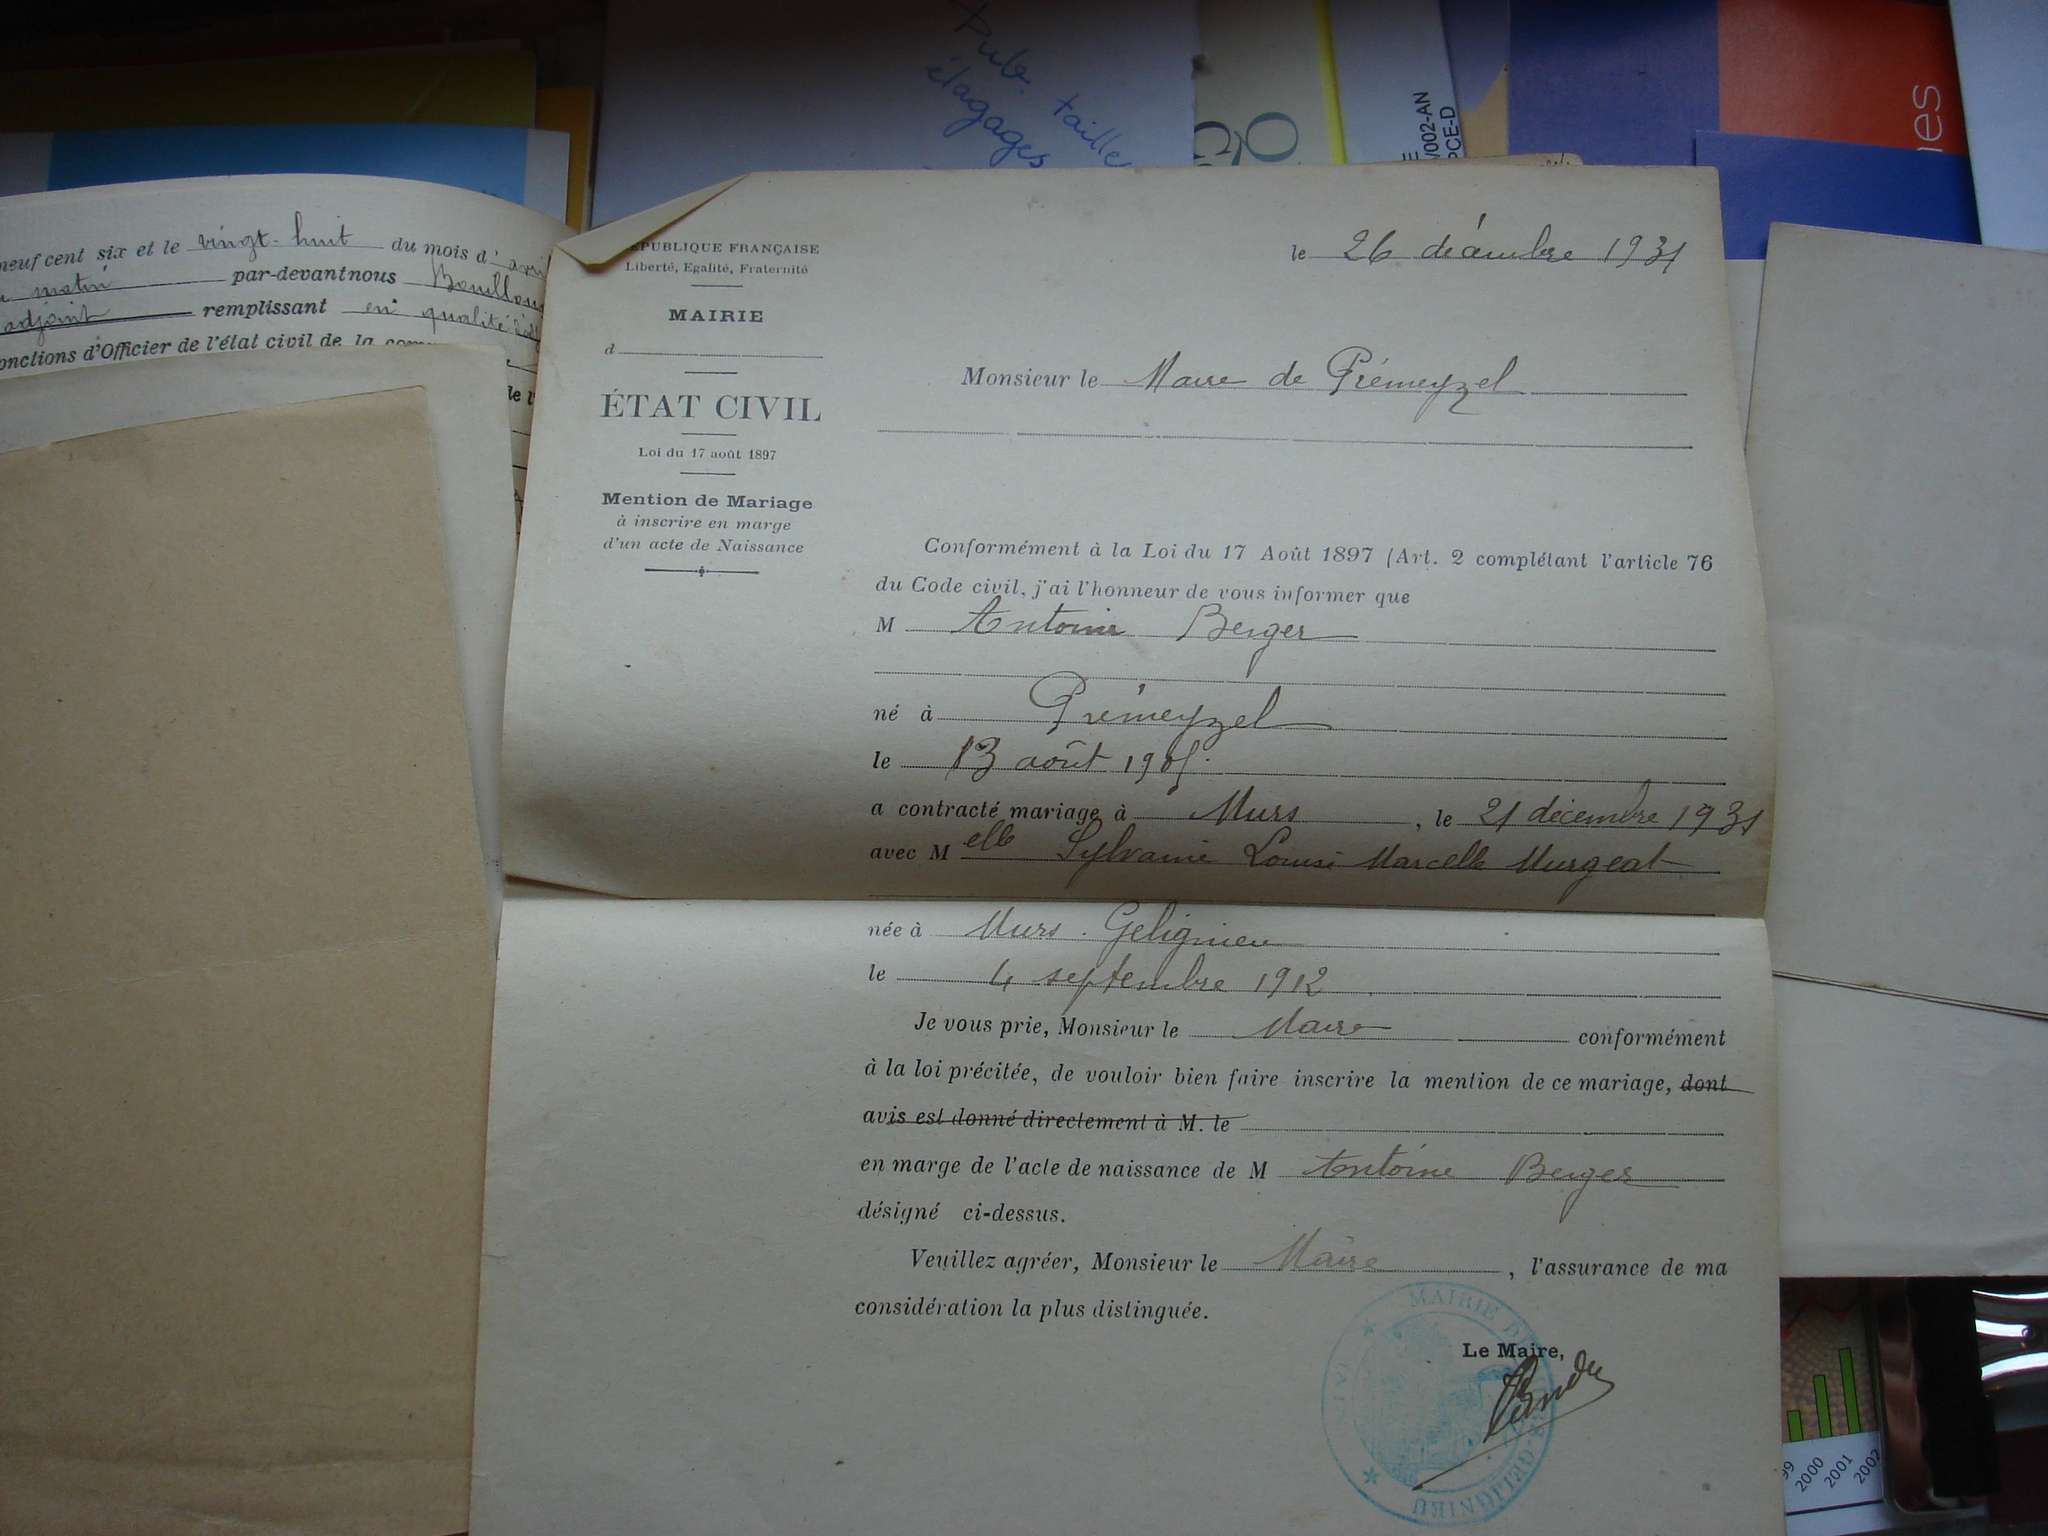 Pub. taille
élagages
V002-AN
PCE-D
nes
neuf cent six et le vingt-huit du mois d'avril
matin par-devant nous
adjoint remplissant en qualité
onctions d'Officier de l'état civil de la
RÉPUBLIQUE FRANÇAISE
Liberté, Egalité, Fraternité
MAIRIE
d
ÉTAT CIVIL
Loi du 17 août 1897
Mention de Mariage
à inscrire en marge
d'un acte de Naissance
le 26 décembre 1931
Monsieur le Maire de Prémeyzel
Conformément à la Loi du 17 Août 1897 (Art. 2 complétant l'article 76
du Code civil, j'ai l'honneur de vous informer que
M Antoine Berger
né à Prémeyzel
le 13 août 1905.
a contracté mariage à Murs, le 21 décembre 1931
avec Melle Sylvanie Louise Marcelle Murgeat
née à Murs. Gelignieu
le 4 septembre 1912
Je vous prie, Monsieur le Maire conformément
à la loi précitée, de vouloir bien faire inscrire la mention de ce mariage, dont
avis est donné directement à M. le
en marge de l'acte de naissance de M Antoine Berger
désigné ci-dessus.
Veuillez agréer, Monsieur le Maire, l'assurance de ma
considération la plus distinguée.
Le Maire,
MAIRIE DE GELIGNIEU
(AIN)
99
2000
2001
2002